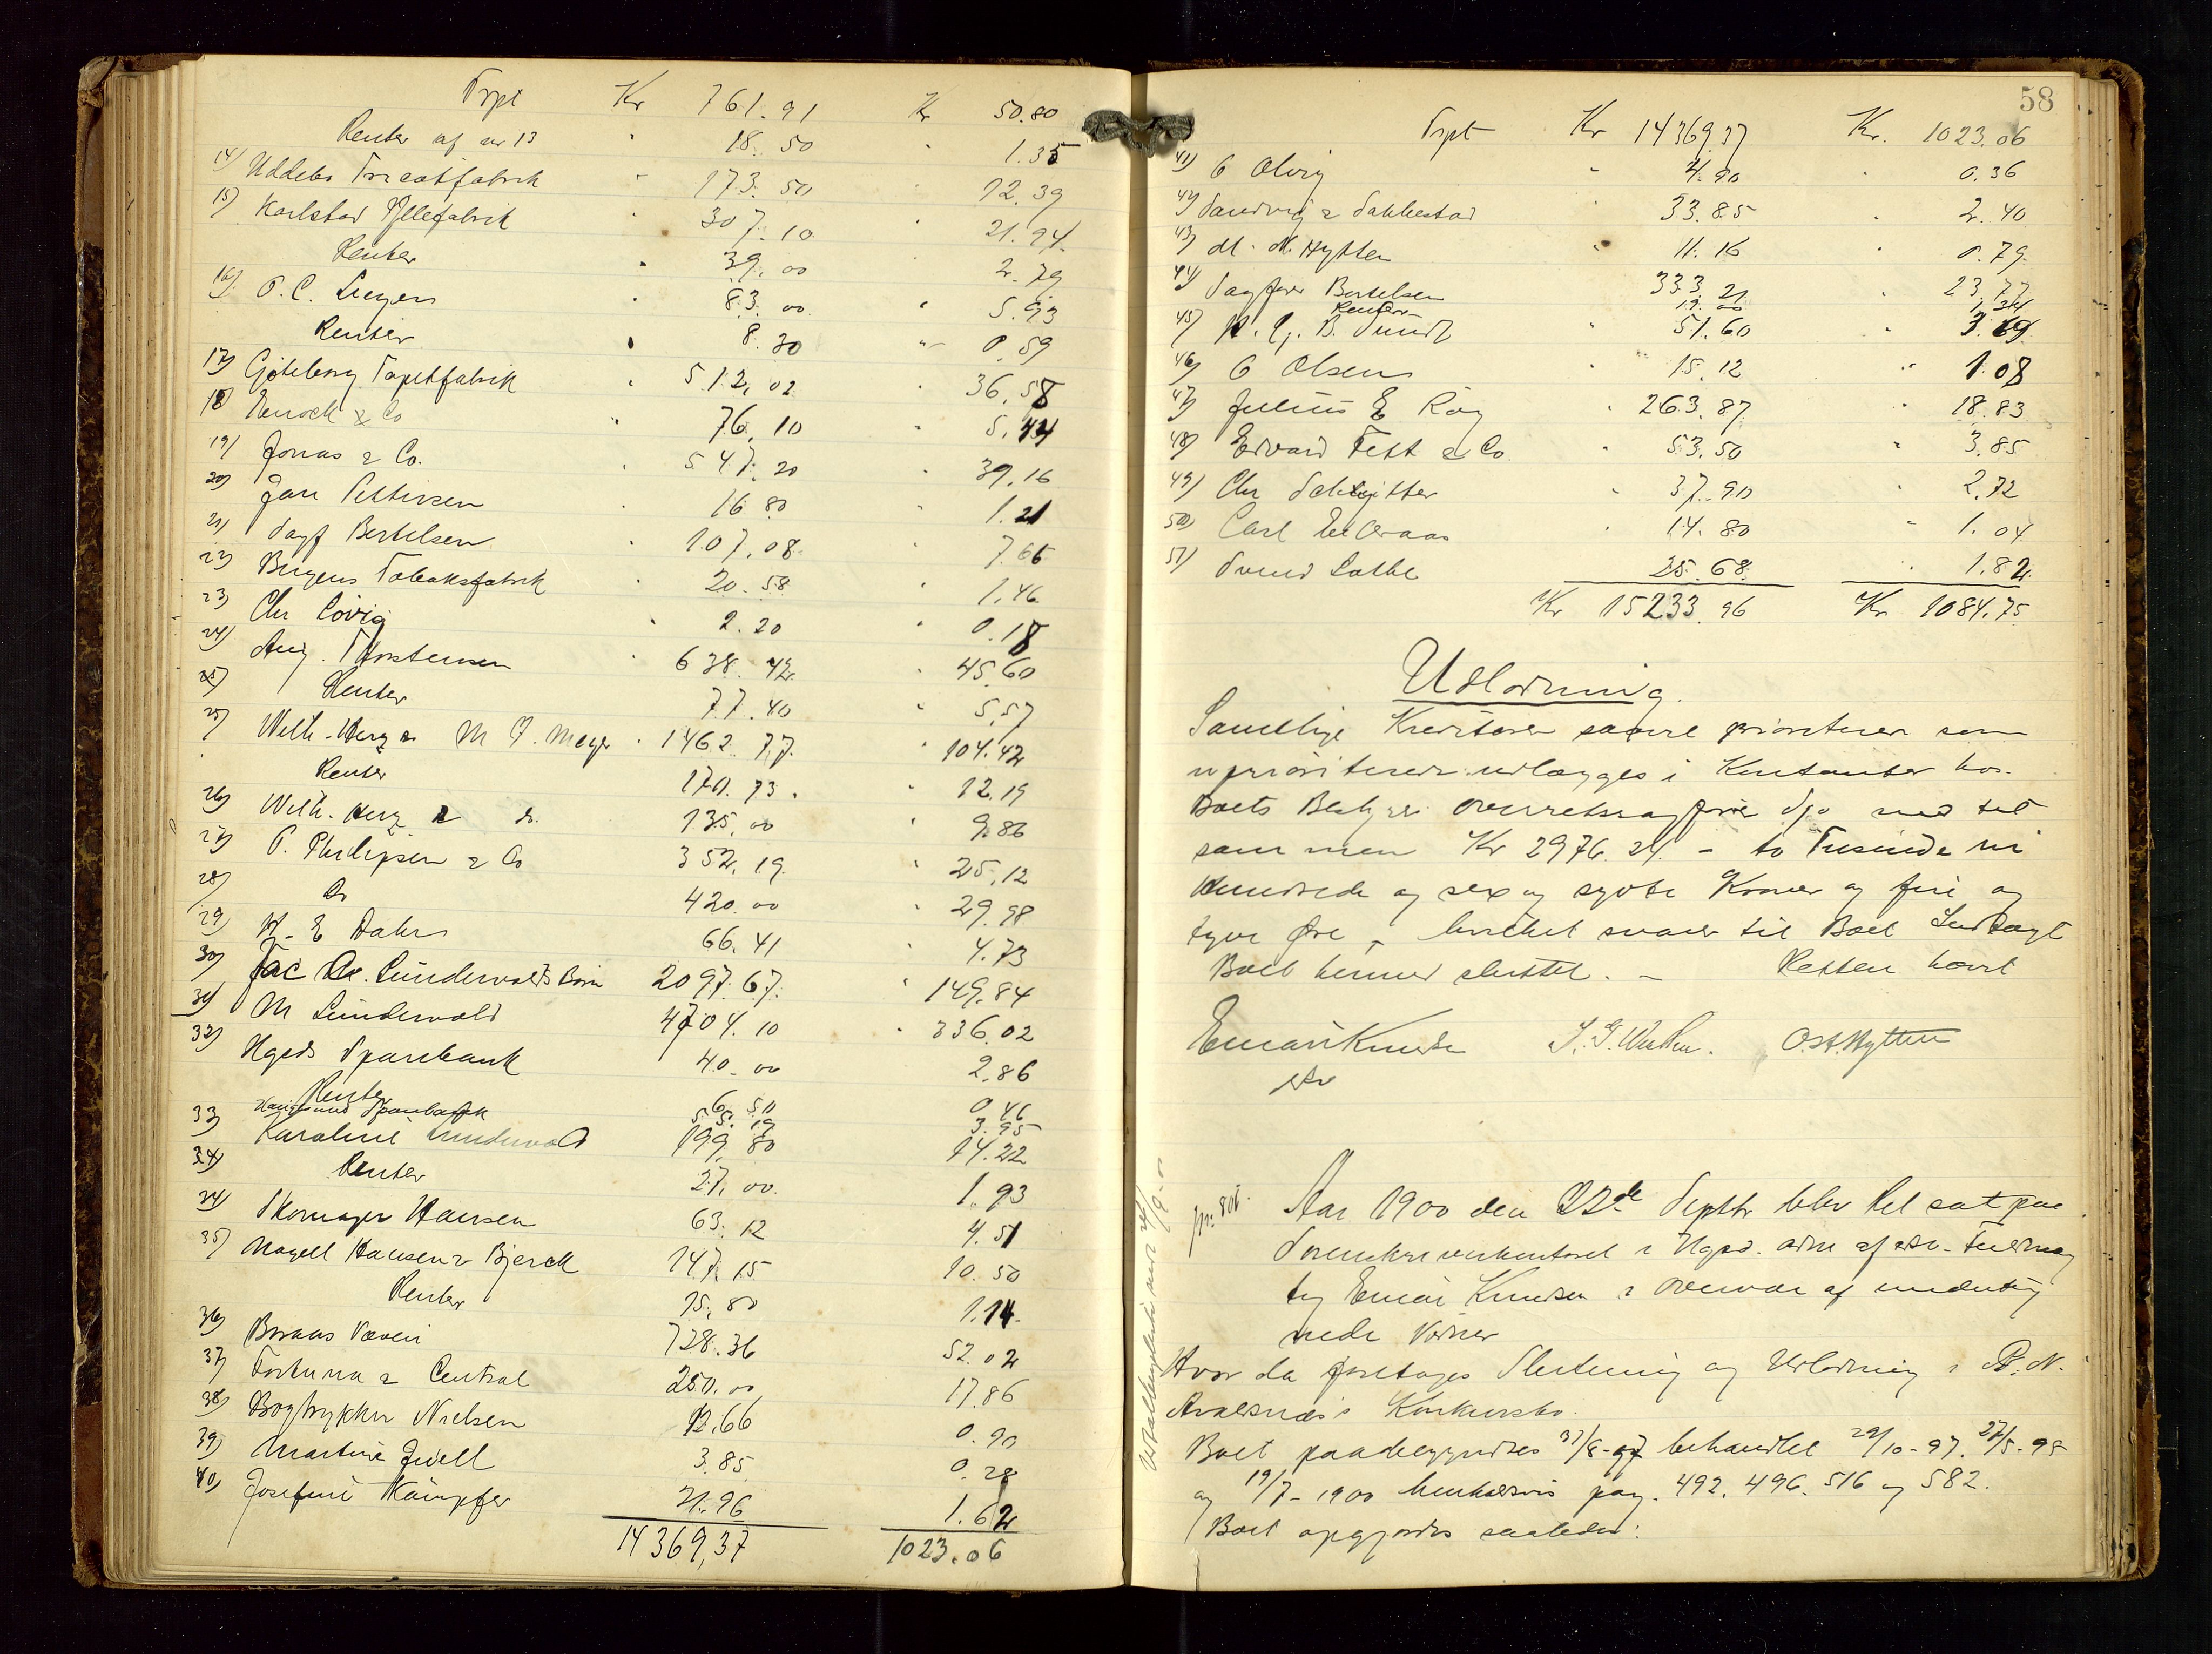 Trpt Kr 761.91 Kr 50.80
Renter af nr 13 " 18.50 " 1.35
14) Uddebo Tricotfabrik " 173.50 " 12.39
15) Karlstad Yllefabrik " 307.10 " 21.94
Renter " 39.00 2.79
16) P. C. " 83.00 " 5.93
Renter " 8.30 " 0.59
17) Göteborg Tapetfabrik " 512.02 " 36.58
18) & Co " 76.10 " 5.44
19) Jonas & Co. " 547.20 " 39.16
20) Jan Pettersen " 16.80 " 1.21
21) Sagf Bertelsen " 107.08 " 7.66
22) Bergens Tobaksfabrik " 20.58 " 1.46
23) Chr Lövig " 2.20 " 0.18
24) Aug. Thorstensen " 638.42 " 45.60
25) Renter 77.40 " 5.57
25) Welh. Herz & M J. Meyer " 1462.77 " 104.42
Renter 170.73 " 12.19
26) Welh. Herz & do. 135.00 " 9.86
27) P. Philipsen & Co 352.19 " 25.12
28) Do 420.00 " 29.98
29) H. E Dahrs 66.41 " 4.73
30) Jac Chr. Sundervolds Børn 2097.67 " 149.84
31) M Sundervold 4704.10 " 336.02
32) Hgsds Sparebank 40.00 2.86
Renter 6.50 0.46
Haugesund Sparebank 55.19 3.95
33) Karoline Sundervold 199.80 14.22
34) Renter 27.00 1.93
34) Skomager Hansen 63.12 4.51
35) Nagell Hansen & Bjerck 147.15 10.50
Renter 15.80 1.14
36) Boraas Væveri 728.36 52.02
37) Fortuna & Central 250.00 17.86
38) Bogtrykker Nielsen 12.66 0.90
39) Martine Jvell 3.85 0.28
40) Josefine Kämpfer 21.96 1.62
14369,37 1023.06
58
Trpt Kr 14369.37 Kr. 1023.06
41) O Olvig " 4.90 " 0.36
42) Sandvig & Sakkestad " 33.85 " 2.40
43) M. M. Hytten " 11.16 0.79
44) Sagfører Bertelsen 333.21 " 23.77
Renter 19.00 1.34
45) B. Sundt " 51.60 " 3.69
46) O Olsen " 15.12 " 1.08
47) Julius E Røg " 263.87 " 18.83
48) Edvard Fett & Co " 53.50 " 3.85
49) Chr Schlytter " 37.90 " 2.72
50) Carl " 14.80 " 1.04
51) Svend Lothe 25.68 " 1.82
Kr 15233.96 Kr 1084.75
Udlodning.
Samtlige Kreditorer saavel prioriterede som
uprioriterede udlægges i Kontanter hos
Boets Bestyrer Overretssagfører med til
sammen Kr 2976.24 – to Tusinde ni
Hundrede og sex og sytti Kroner og fire og
tyve Øre, hvilket svarer til Boet Indtægt
Boet hermed sluttet. – Retten hævet
Einar Knudsen O. St. Hytten
Aar 1900 den 22de Septbr blev Ret sat paa
Sorenskriverkontoret i Hgsd. adm af edsv. Fuldmæg
tig Einar Knudsen i Overvær af underteg
nede Vidner
Hvor da foretages Slutning og Udlodning i N.
Avaldsnes's Konkursbo.
Boet paabegyndtes 31/8-97 behandlet 29/10-97. 27/5-98
og 19/7-1900 henholdsvis pag. 492. 496. 516 og 582.
Boet opgjordes saaledes: